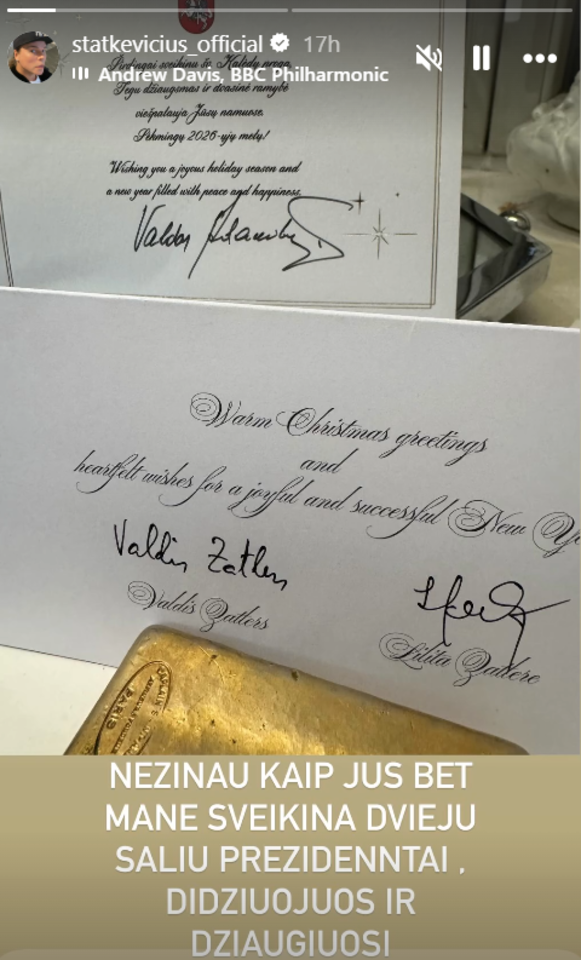 statkevicius_official 17h
Andrew Davis, BBC Philharmonic
Širdingai sveikinu šv. Kalėdų proga.
Tegu džiaugsmas ir dvasinė ramybė
viešpatauja Jūsų namuose.
Sėkmingų 2026-ųjų metų!
Wishing you a joyous holiday season and
a new year filled with peace and happiness.
Warm Christmas greetings
and
heartfelt wishes for a joyful and successful New
Valdis Zatlers
Valdis Zatlers
Lilita Zatlere
PARIS
NEZINAU KAIP JUS BET
MANE SVEIKINA DVIEJU
SALIU PREZIDENNTAI ,
DIDZIUOJUOS IR
DZIAUGIUOSI